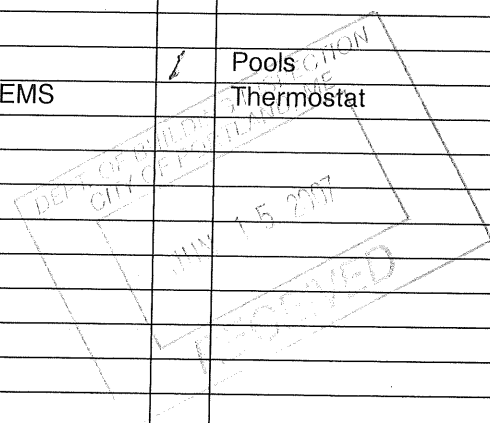 1 Pools
EMS Thermostat
DEPT. OF BUILDING INSPECTION
CITY OF PORTLAND, ME
JUN 15 2007
RECEIVED